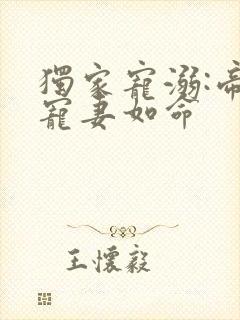 獨家寵溺:帝
寵妻如命
王懷毅